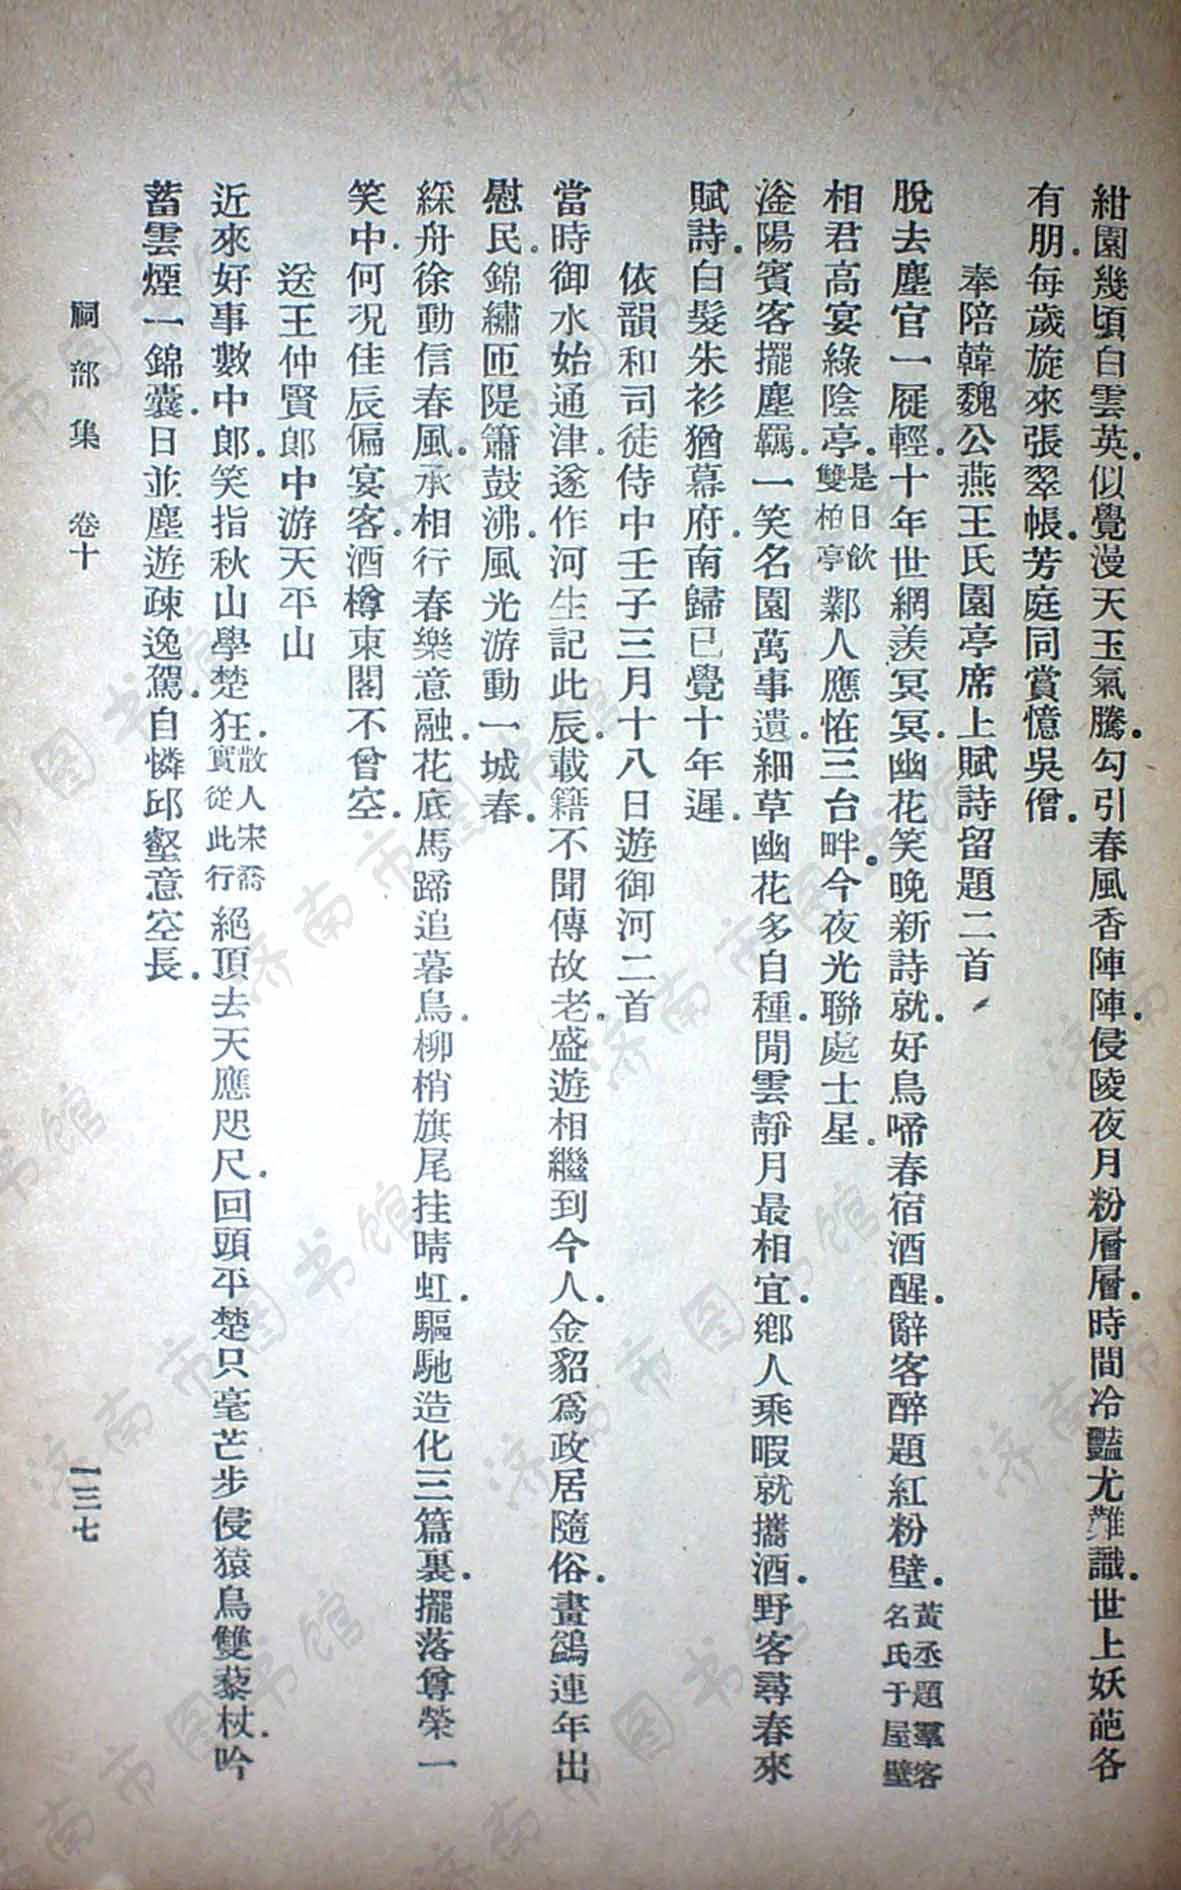 紺園幾頃白雲英。似覺漫天玉氣騰。勾引春風香陣陣。侵陵夜月粉層層。時間冷豔尤難識。世上妖葩各
有朋。每歲旋來張翠帳。芳庭同賞憶吳僧。
奉陪韓魏公燕王氏園亭席上賦詩留題二首
脫去塵官一屣輕。十年世網羨冥冥。幽花笑晚新詩就。好鳥啼春宿酒醒。辭客醉題紅粉壁。黃丞題羣客名氏于屋壁
相君高宴綠陰亭。是日飲雙柏亭鄴人應恠三台畔。今夜光聯處士星。
滏陽賓客擺塵羈。一笑名園萬事遺。細草幽花多自種。閒雲靜月最相宜。鄉人乘暇就攜酒。野客尋春來
賦詩。白髮朱衫猶幕府。南歸已覺十年遲。
依韻和司徒侍中壬子三月十八日遊御河二首
當時御水始通津。遂作河生記此辰。載籍不聞傳故老。盛遊相繼到今人。金貂爲政居隨俗。畫鷁連年出
慰民。錦繡匝隄簫鼓沸。風光游動一城春。
綵舟徐動信春風。承相行春樂意融。花底馬蹄追暮鳥。柳梢旗尾挂晴虹。驅馳造化三篇裏。擺落尊榮一
笑中。何況佳辰偏宴客。酒樽東閣不曾空。
送王仲賢郎中游天平山
近來好事數中郎。笑指秋山學楚狂。散人宋喬實從此行絕頂去天應咫尺。回頭平楚只毫芒。步侵猿鳥雙藜杖。吟
蓄雲煙一錦囊。日並塵遊疎逸駕。自憐邱壑意空長。
祠部集 卷十
一三七
济南市图书馆